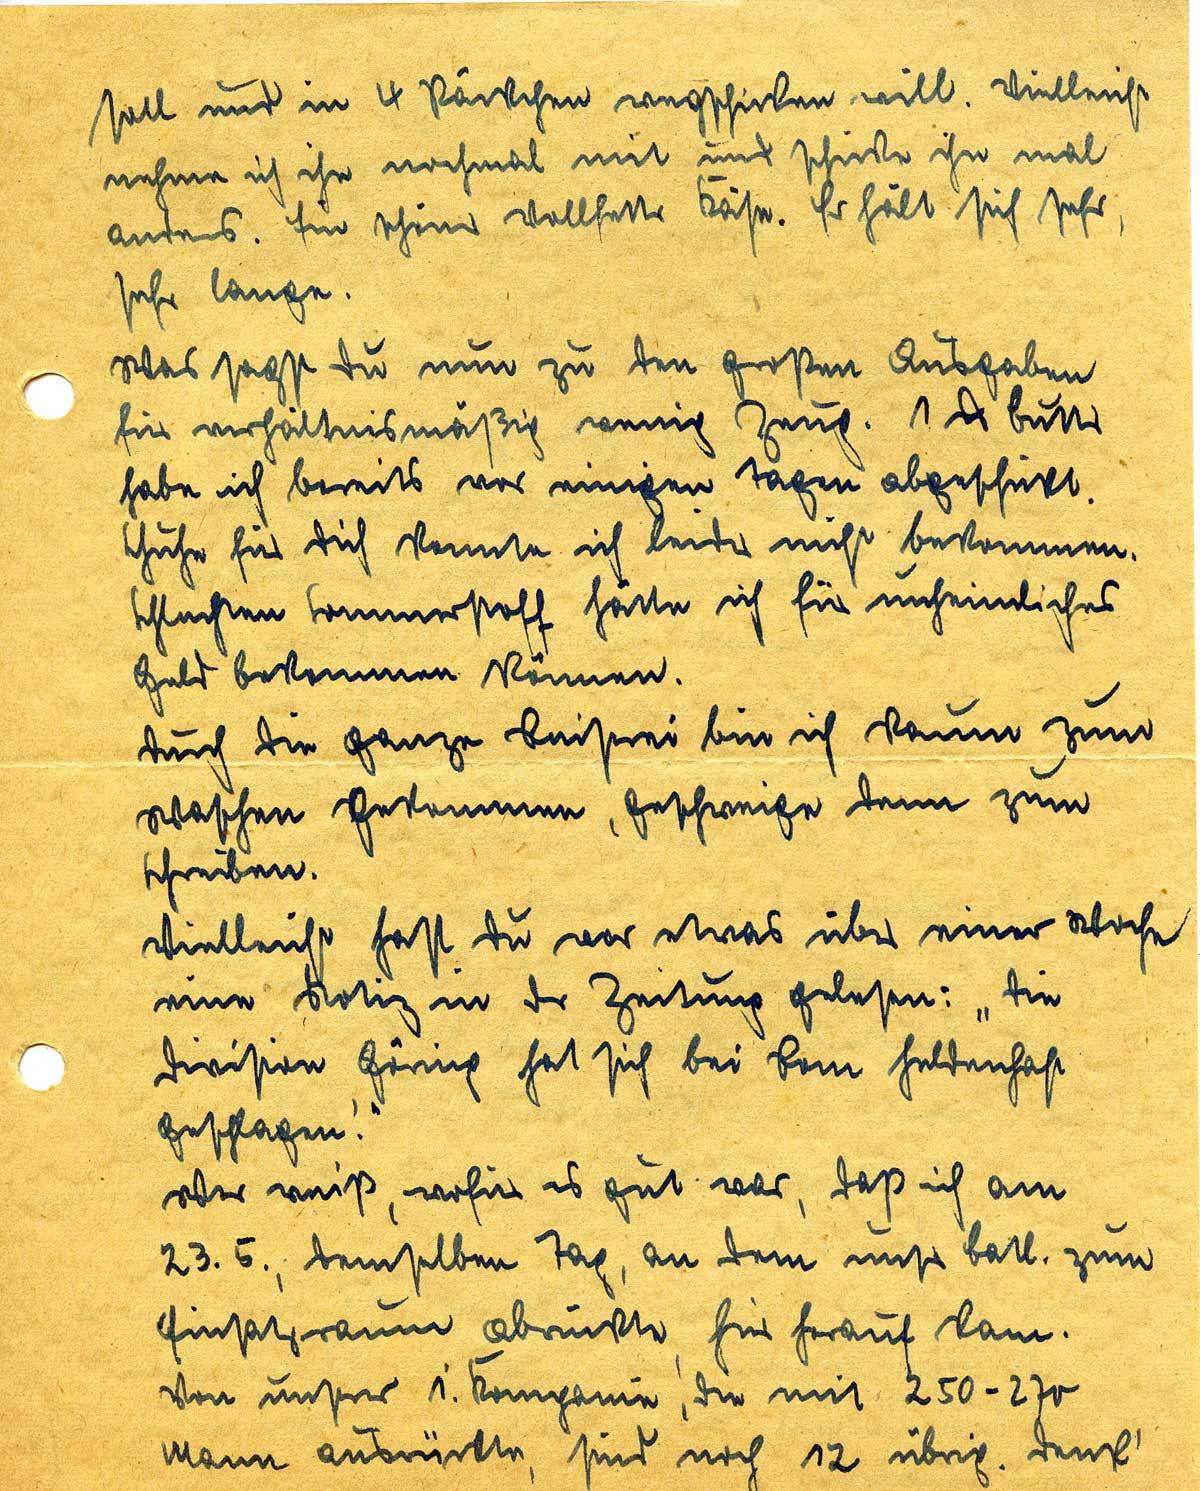 soll und in 4 Päckchen wegschicken will. Vielleicht
nehme ich ihn nochmal mit und schicke ihn mal
anders. Ein schöner vollfetter Käse. Er hält sich sehr,
sehr lange.
Was sagst Du nun zu den großen Ausgaben
für verhältnismäßig wenig Zeug. 1 ℔ Butter
habe ich bereits vor einigen Tagen abgeschickt.
Schuhe für Dich konnte ich leider nicht bekommen.
Schlechten Sommerstoff hätte ich für unheimliches
Geld bekommen können.
Durch die ganze Reiserei bin ich kaum zum
Waschen gekommen, geschweige denn zum
Schreiben.
Vielleicht hast Du vor etwas über einer Woche
eine Notiz in der Zeitung gelesen: „Die
Division Göring hat sich bei Rom heldenhaft
geschlagen!"
Wer weiß, wofür es gut war, daß ich am
23. 5., demselben Tag, an dem unser Batl. zum
Einsatzraum abrückte, hier herauf kam.
Von unserer 1. Kompanie, die mit 250-270
Mann ausrückte, sind noch 12 übrig. Denk'